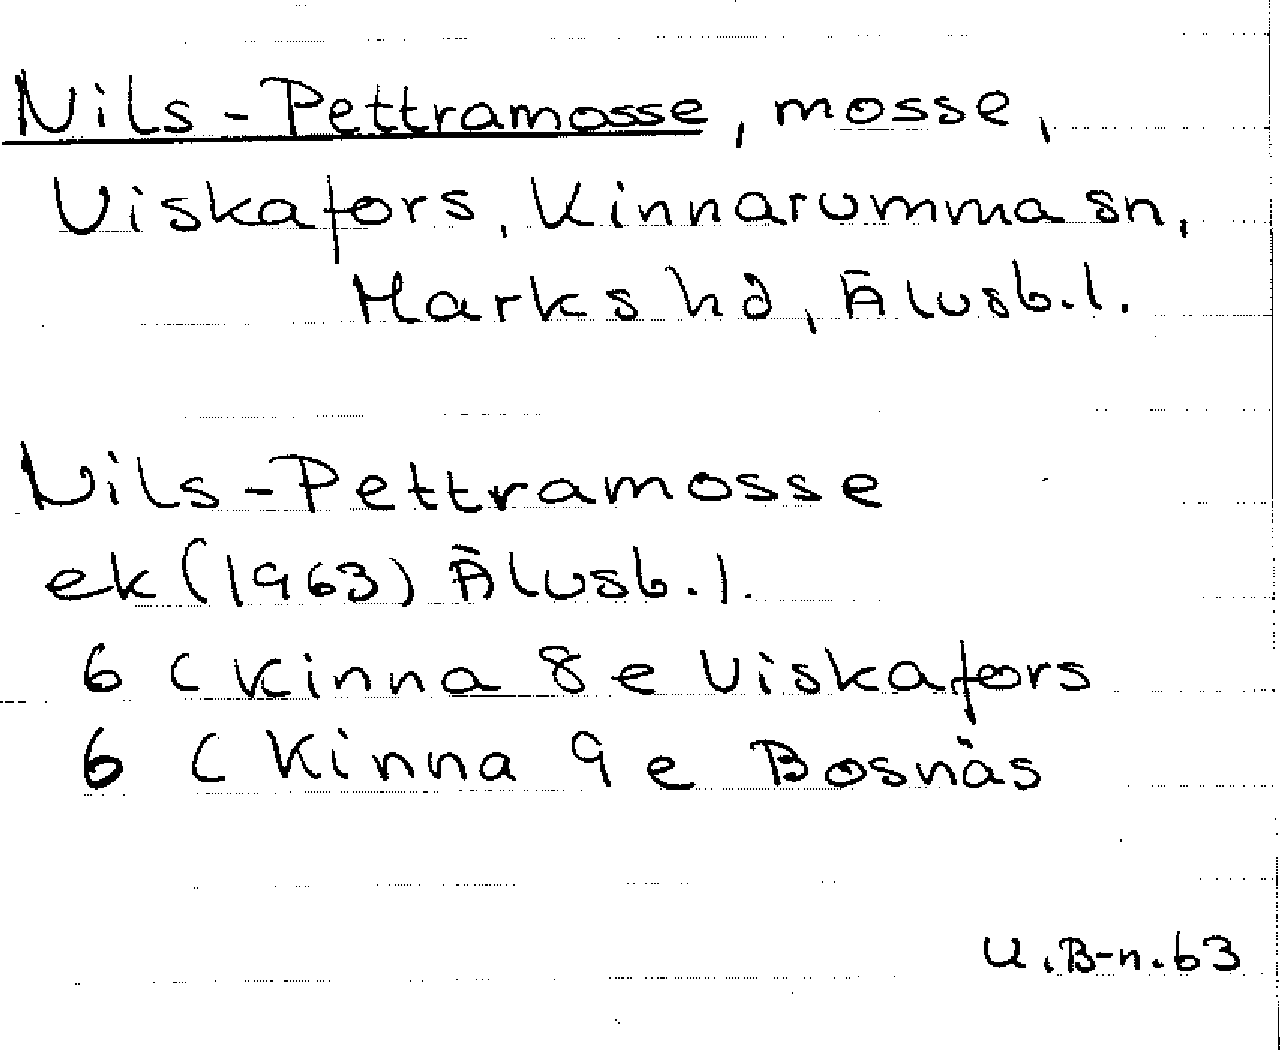 Nils-Pettramosse, mosse,
Viskafors, Kinnarumma sn,
Marks hd, Älvsb.l.
Nils-Pettramosse
ek (1963) Älvsb.l.
6 C Kinna 8 e Viskafors
6 C Kinna 9 e Bosnäs
U.B-n.63